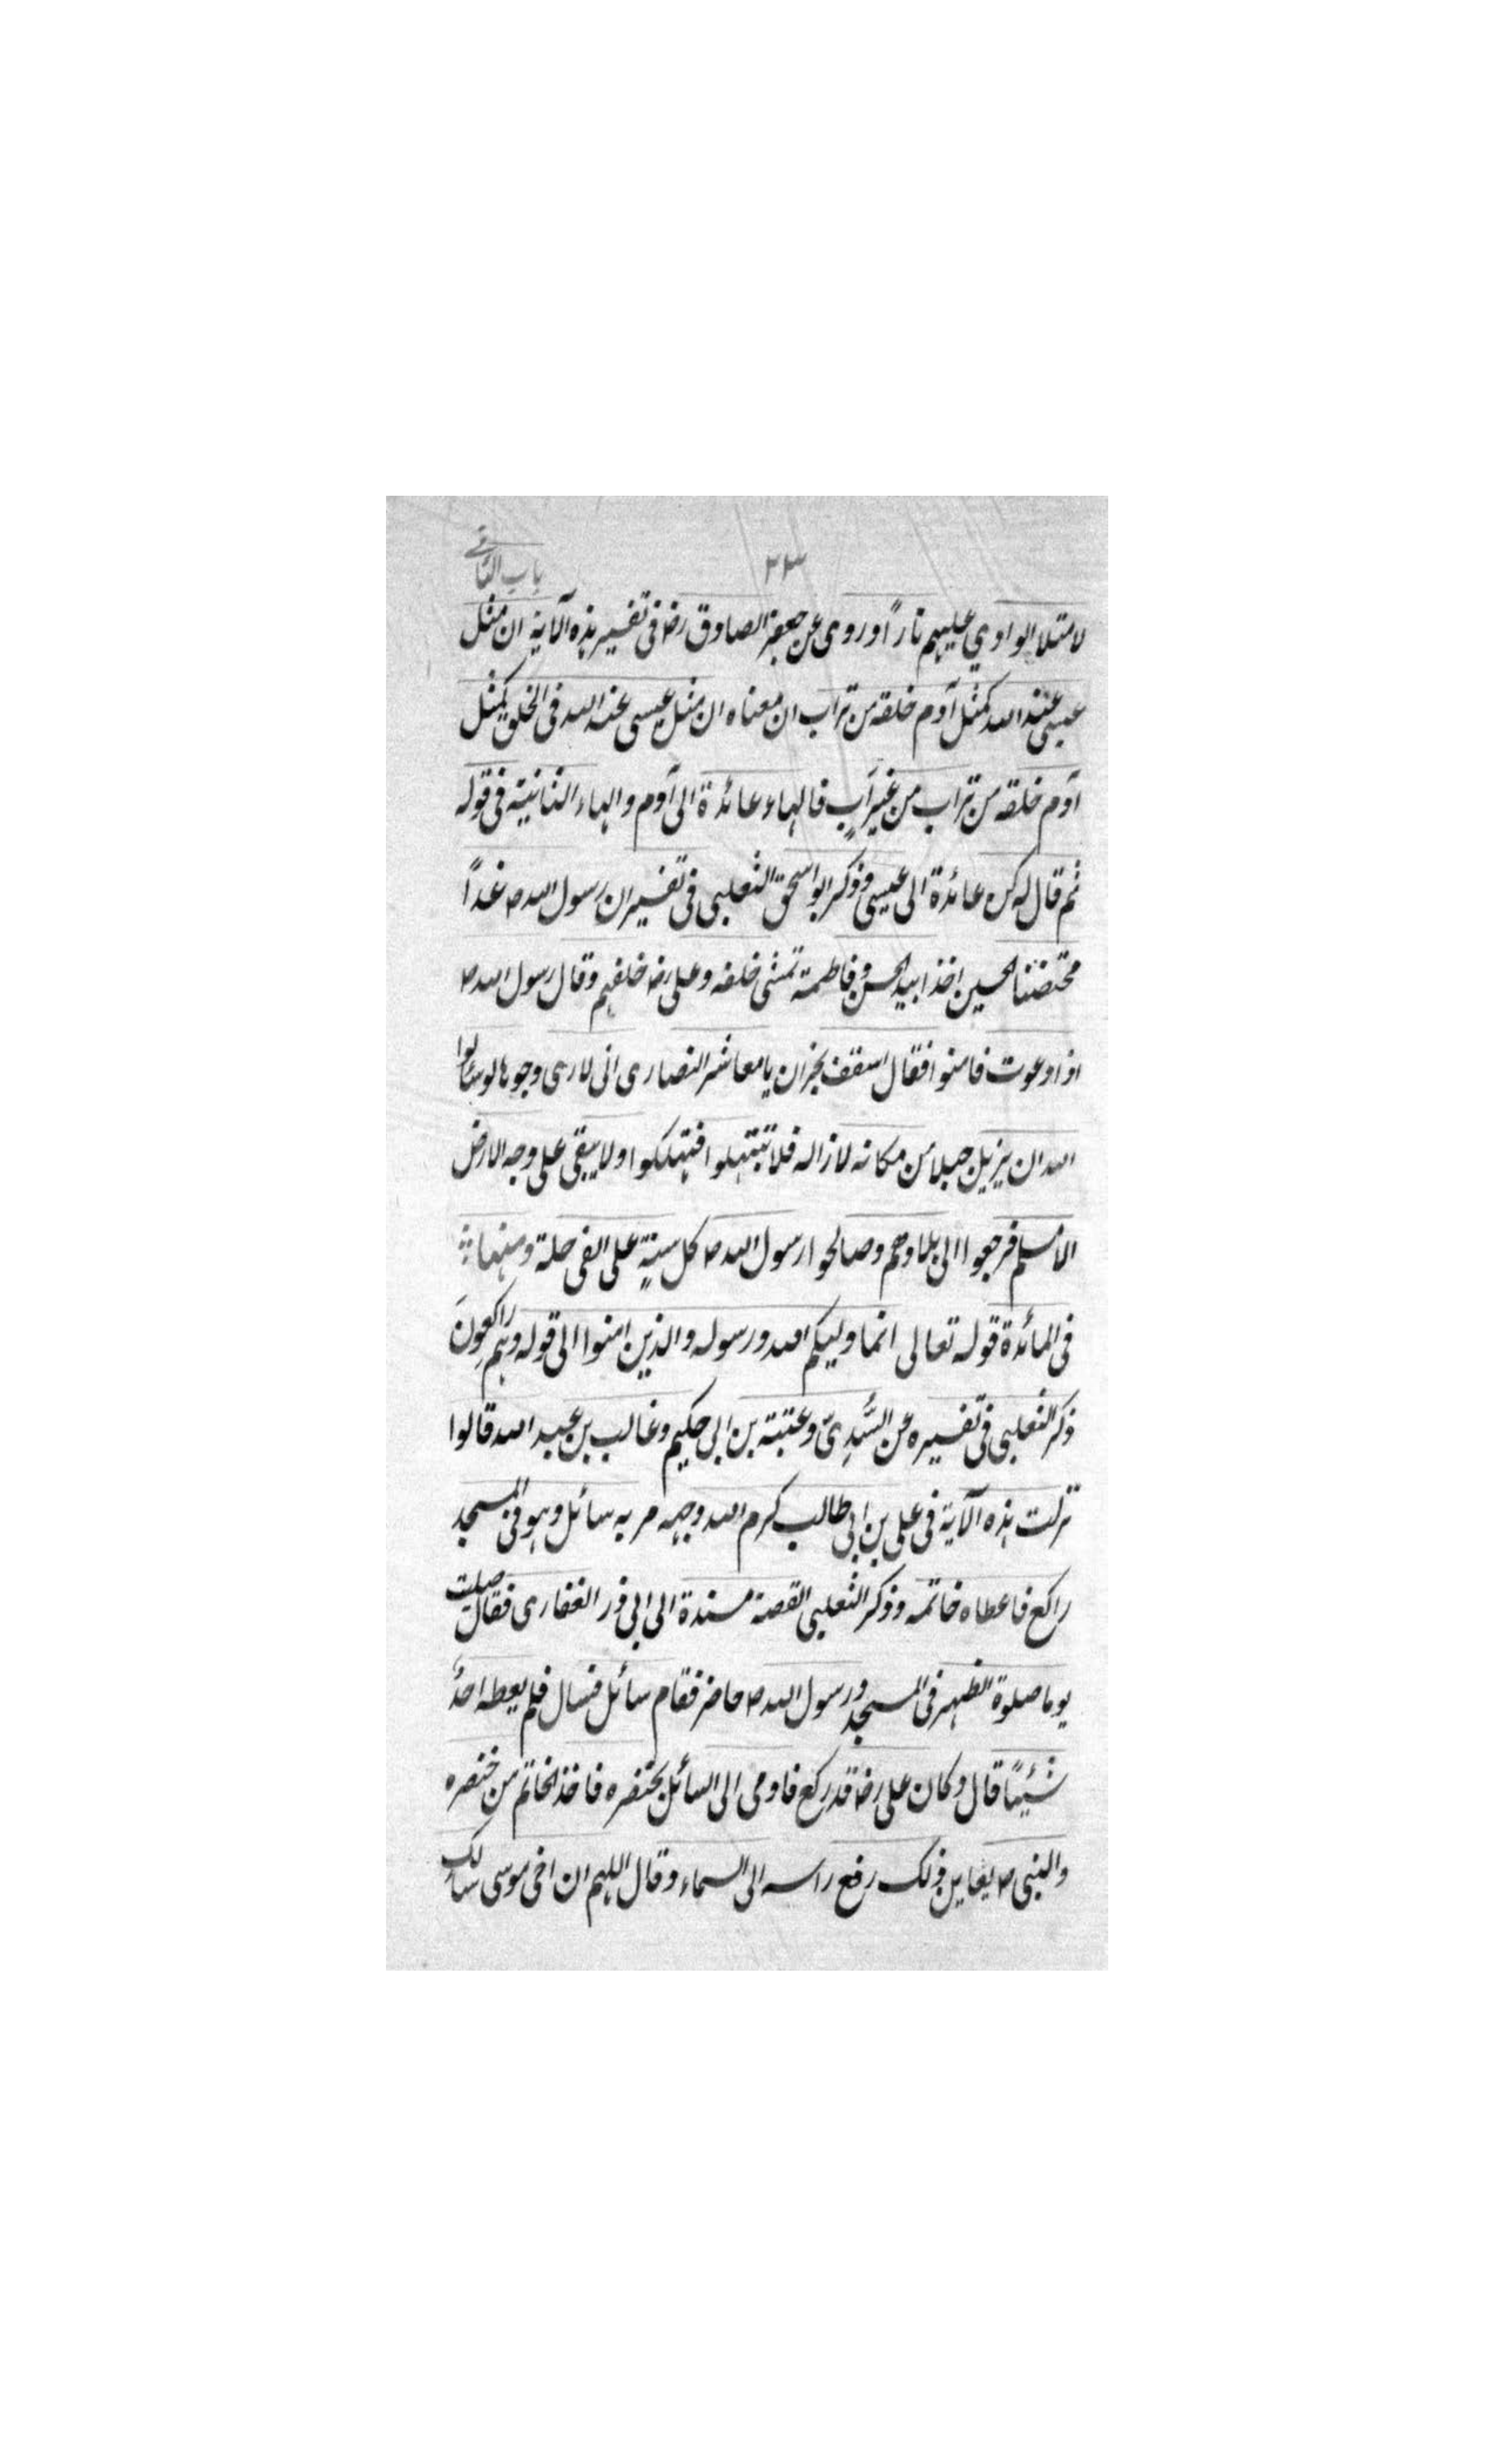 باب الثانی
٢٣
لامتلا الوادي عليهم ناراً وروى عن جعفر الصادق رض فى تفسير هذه الآية ان مثل
عيسى عند الله كمثل آدم خلقه من تراب ان معناه ان مثل عيسى عند الله فى الخلق كمثل
آدم خلقه من تراب من غير أبٍ فالهاء عائدة الى آدم والهاء الثانية فى قوله
ثم قال له كن عائدة الى عيسى وذكر ابو اسحق الثعلبى فى تفسير ان رسول الله ص غداً
محتضنا الحسين اخذا بيد الحسن وفاطمة تمشى خلفه وعلى رض خلفهم وقال رسول الله ص
اذا دعوت فامنوا فقال اسقف نجران يا معاشر النصارى انى لارى وجوها لو سالوا
الله ان يزيل جبلا من مكانه لازاله فلا تبتهلوا فتهلكوا ولا يبقى على وجه الارض
الا مسلم فرجعوا الى بلادهم وصالحوا رسول الله ص كل سنةٍ على الفى حلة ومنها
فى المائدة قوله تعالى انما وليكم الله ورسوله والذين امنوا الى قوله وهم راكعونَ
ذكر الثعلبى فى تفسيره عن السُّدِىّ وعتبة بن ابى حكيم وغالب بن عبد الله قالوا
نزلت هذه الآية فى على بن ابى طالب كرم الله وجهه مر به سائل وهو فى المسجد
راكع فاعطاه خاتمه وذكر الثعلبى القصة مسندة الى ابى ذر الغفارى فقال صليت
يوما صلوة الظهر فى المسجد ورسول الله ص حاضر فقام سائل فسال فلم يعطه احدٌ
شيئًا قال وكان على رض قد ركع فاومى الى السائل بخنصره فاخذ الخاتم من خنصره
والنبى ص يعاين ذلك رفع راسه الى السماء وقال اللهم ان اخى موسى سالك